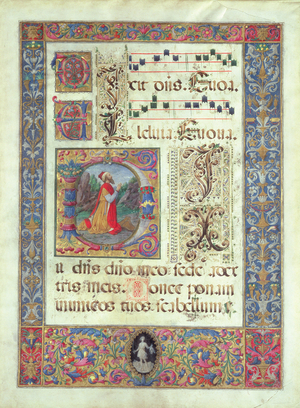 dñs. Euoa.
leluia. Euoua.
DI
dñs dño meo sede a dex
tris meis. Donec ponam
inimicos tuos scabellum